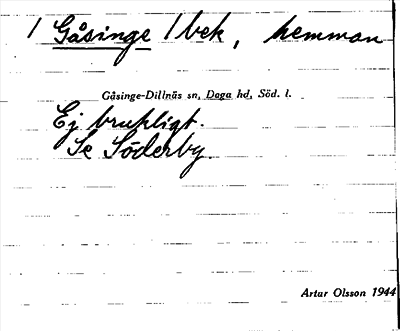 1 Gåsinge 1 bek, hemman
Gåsinge-Dillnäs sn, Daga hd, Söd. l.
Ej brukligt.
Se Söderby.
Artur Olsson 1944